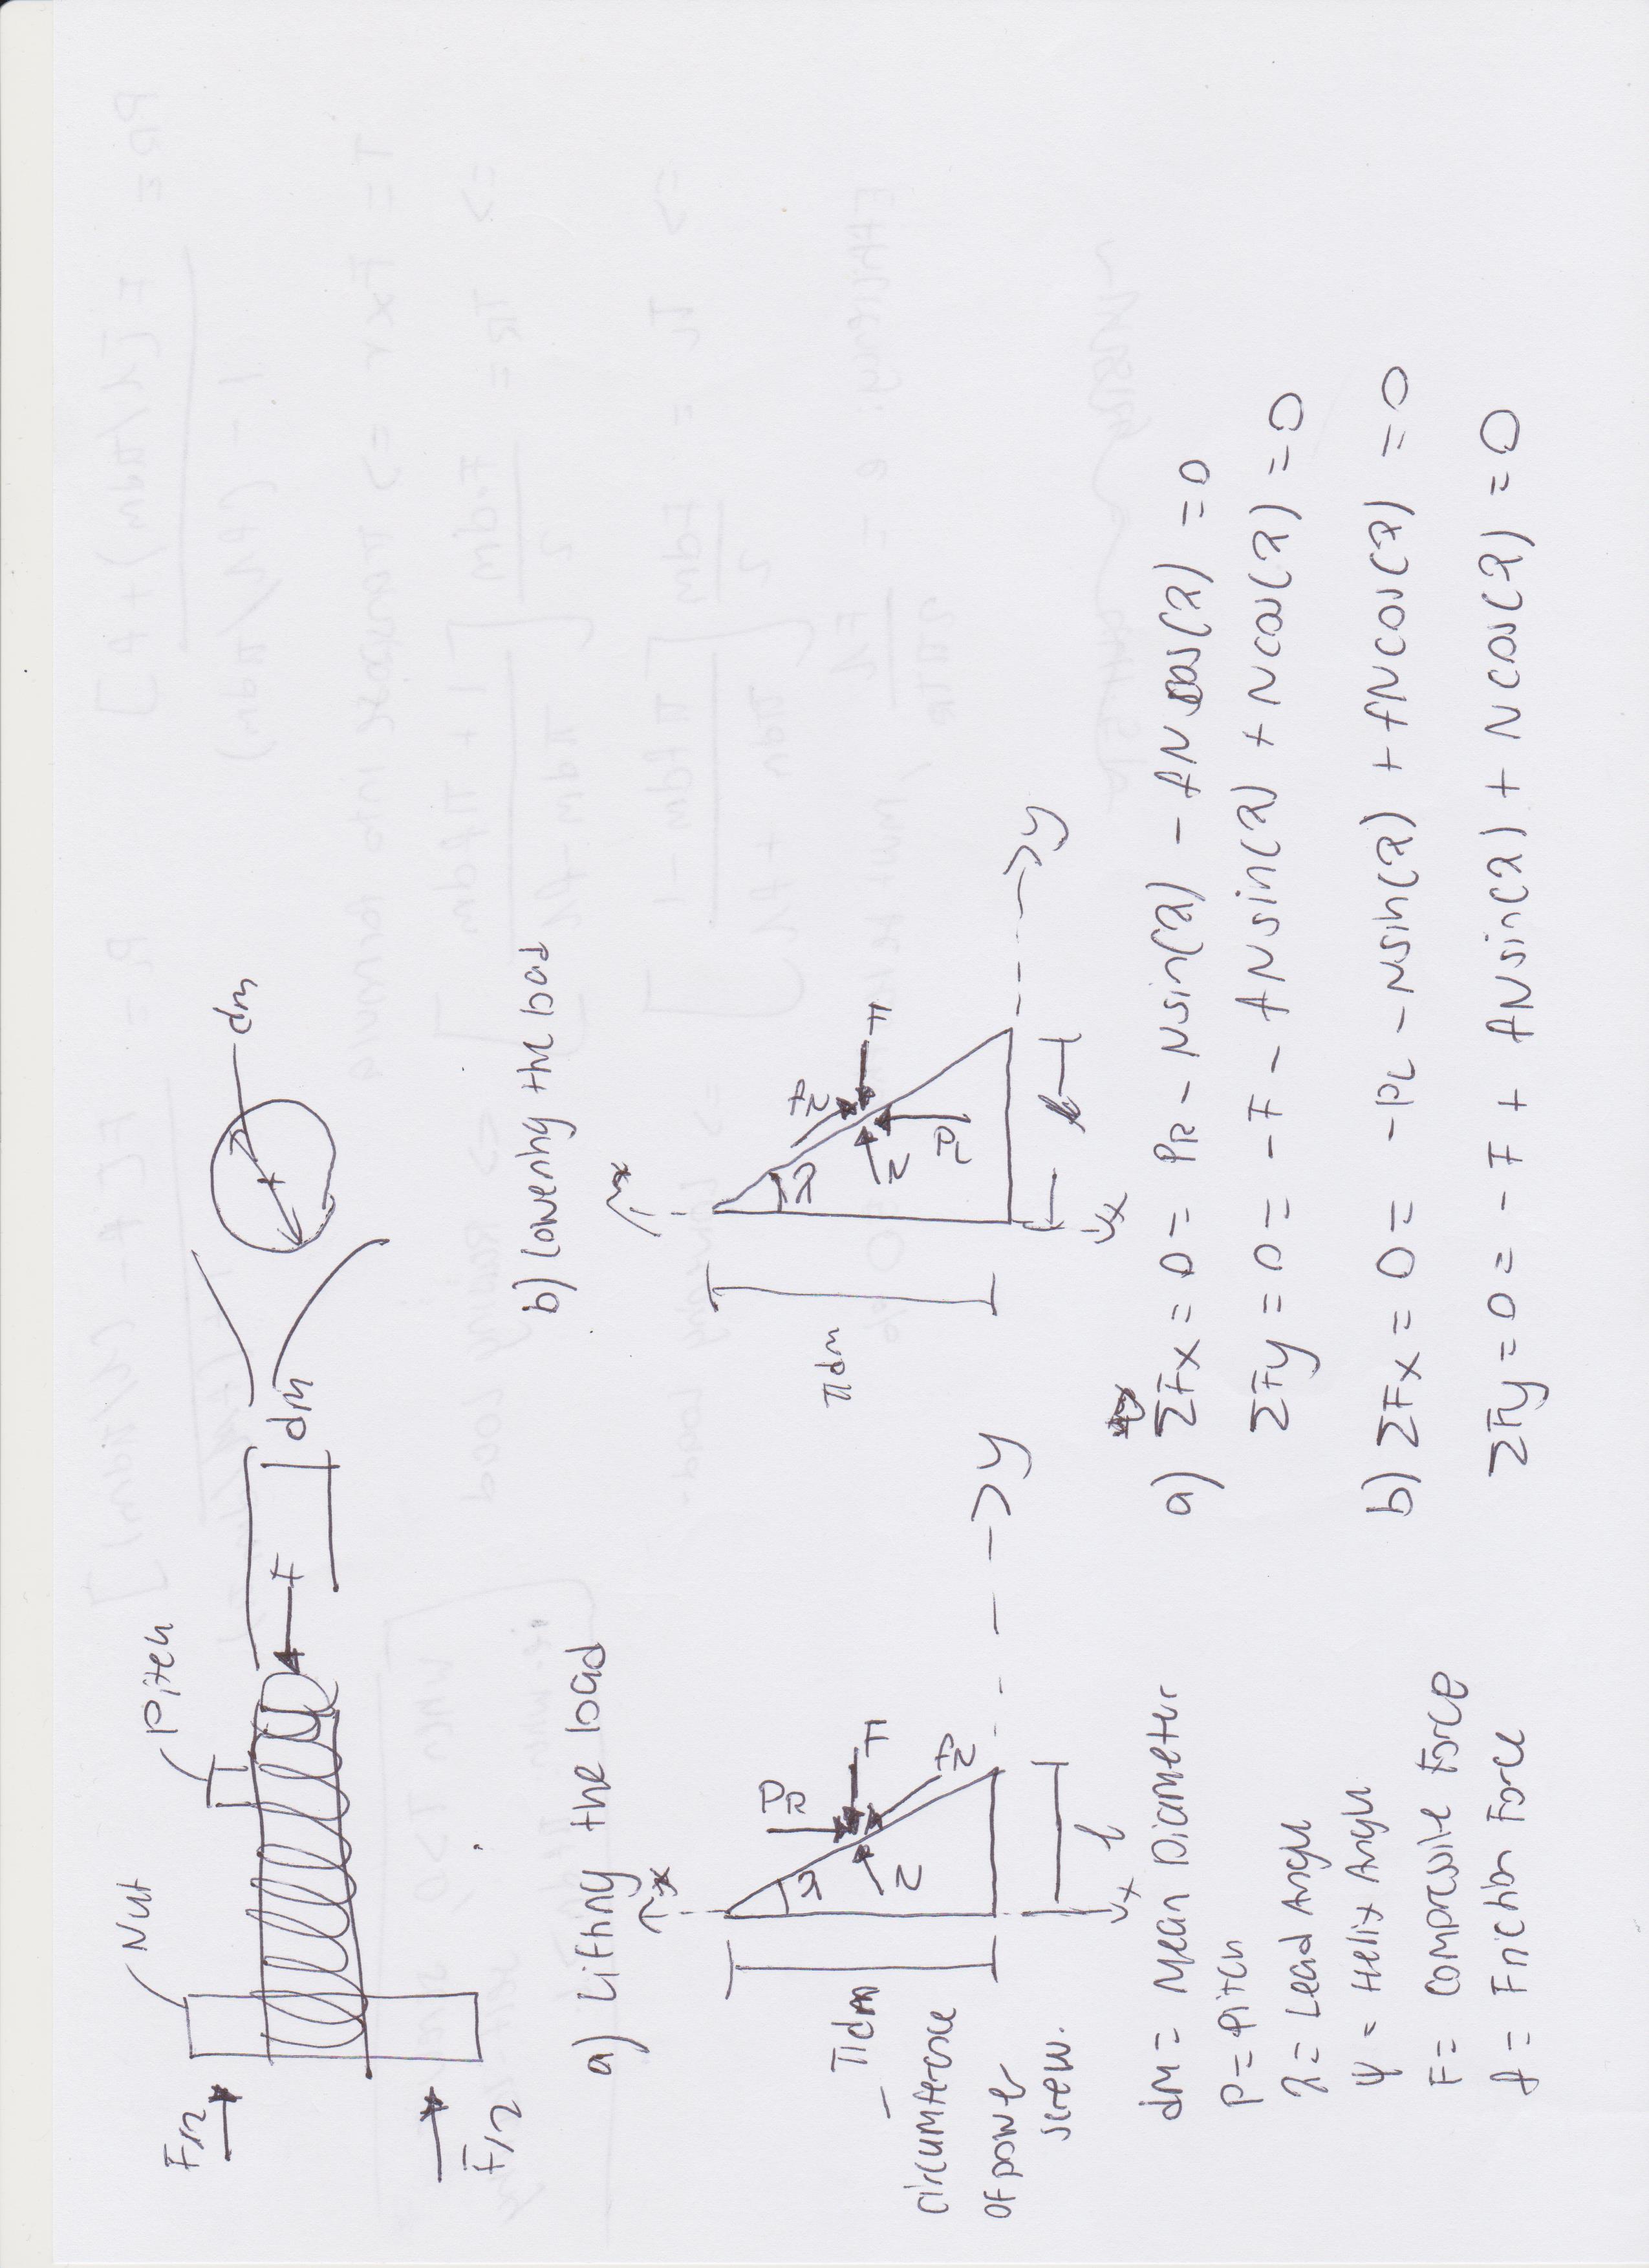 Nut
Pitch
F/2
F/2
F
dm
dm
a) Lifting the load
b) Lowering the load
x
PR
F
fN
N
λ
πdm
l
x
y
- circumference
of power
screw.
x
fN
F
N
PL
λ
πdm
l
x
y
dm = Mean Diameter
P = Pitch
λ = Lead Angle
ψ = Helix Angle
F = Compressive Force
f = Friction Force
a) ΣFx = 0 = PR - Nsin(λ) - fNcos(λ) = 0
ΣFy = 0 = -F - fNsin(λ) + Ncos(λ) = 0
b) ΣFx = 0 = -PL - Nsin(λ) + fNcos(λ) = 0
ΣFy = 0 = -F + fNsin(λ) + Ncos(λ) = 0